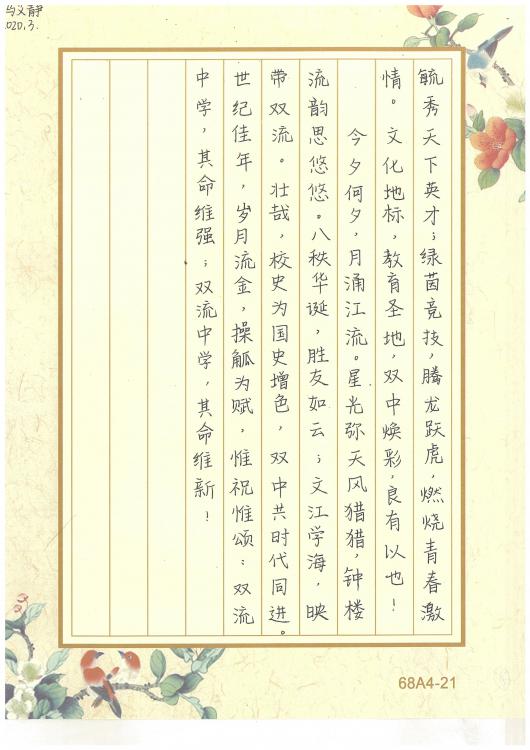 毓秀天下英才；绿茵竞技，腾龙跃虎，燃烧青春激
情。文化地标，教育圣地，双中焕彩，良有以也！
今夕何夕，月涌江流。星光弥天风猎猎，钟楼
流韵思悠悠。八秩华诞，胜友如云；文江学海，映
带双流。壮哉，校史为国史增色，双中共时代同进。
世纪佳年，岁月流金，操觚为赋，惟祝惟颂：双流
中学，其命维强；双流中学，其命维新！
文静
020.3.
68A4-21